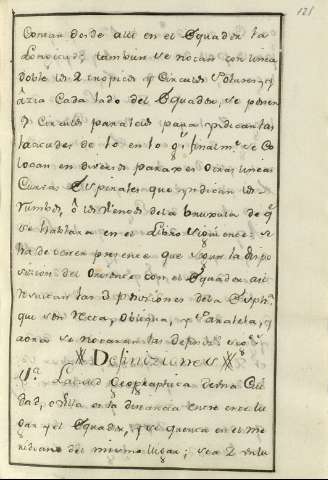 121
Contar desde alli en el Equador la
Longitud; tambien se notan con linea
doble los 2 tropicos y Circulos Polares, y
âzia Cada lado del Equador, se ponen
Circulos paralelos para yndicar las
latitudes de 10 en 10 gs. finalmte. se Co
locan en diversos parajes otras lineas
Curvas Espirales que yndican los
rumbos, ô los vientos de la bruxula de q̃
se hablara en el Libro siguiente: se
ha de tener presente que segun la dispo
sicion del Orizonte con el Equador asi
resultan las 3 posiciones de la Esphª.
que son Recta, Obliqua, y Paralela, y
aora se notaran las definis. sigtes.
Definiziones
1ª. Latitud Geographica de una Ciu
dad, o Villa es la distancia entre este lu
gar y el Equador, que se quenta en el me
ridiano del mismo lugar; sea Z un lu